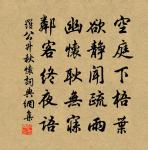 空庭下梧葉
欲靜聞疏雨
幽懷耿無寐
鄰客終夜語
羅公升秋懷詞典網集